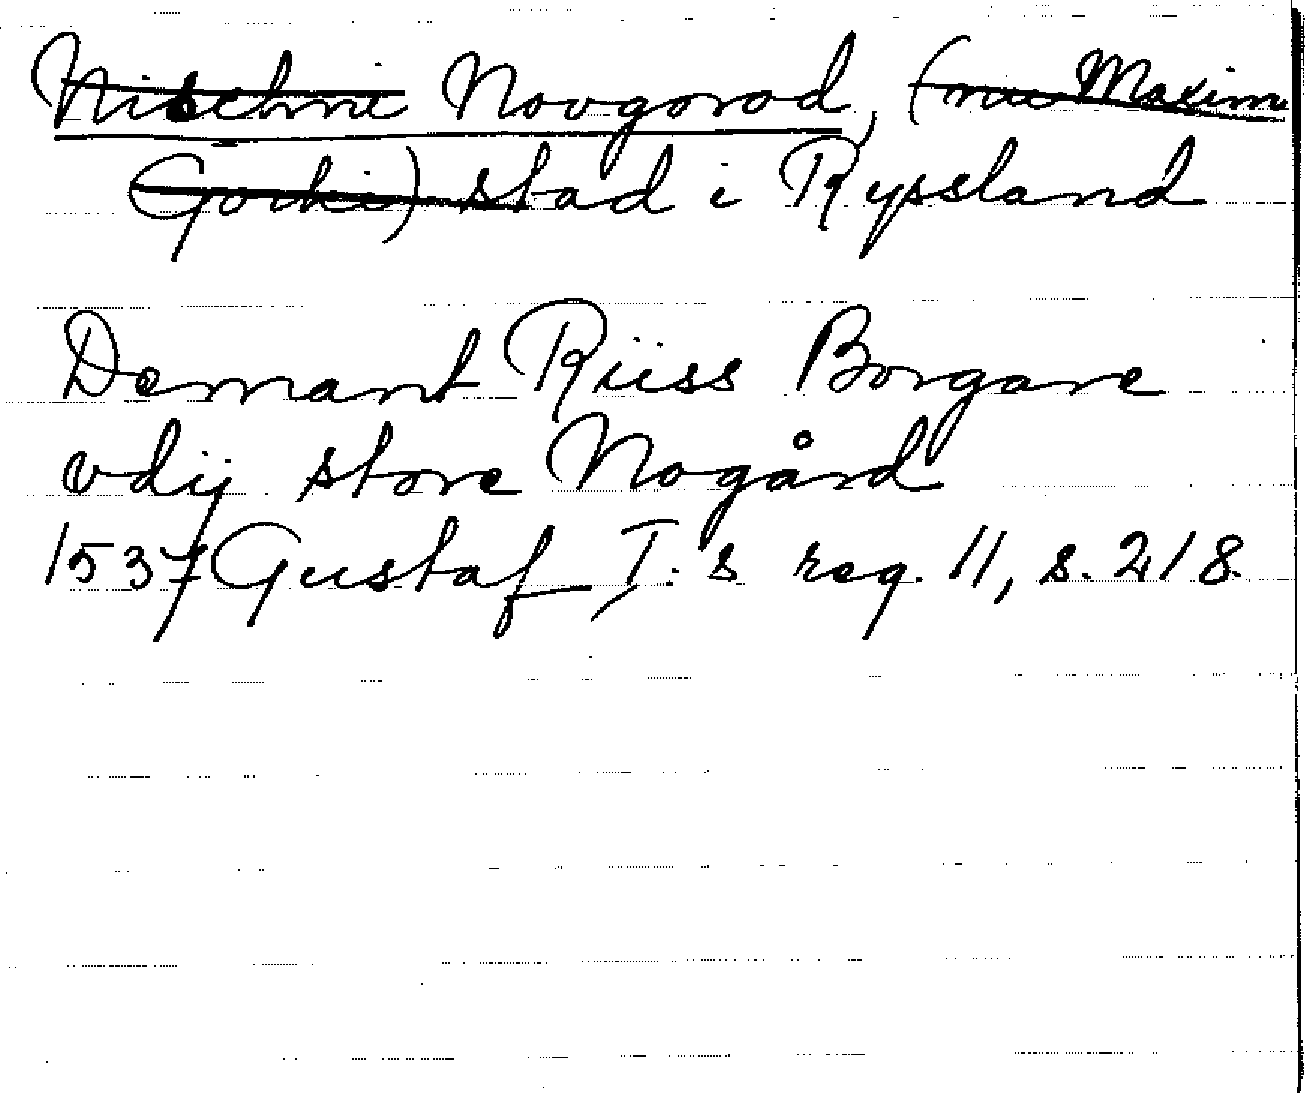 Nischni Novgorod, (nu Maxim
Gorki) stad i Ryssland
Demant Rüss Borgare
vdij store Nogård
1537 Gustaf I.s reg. 11, s. 218.